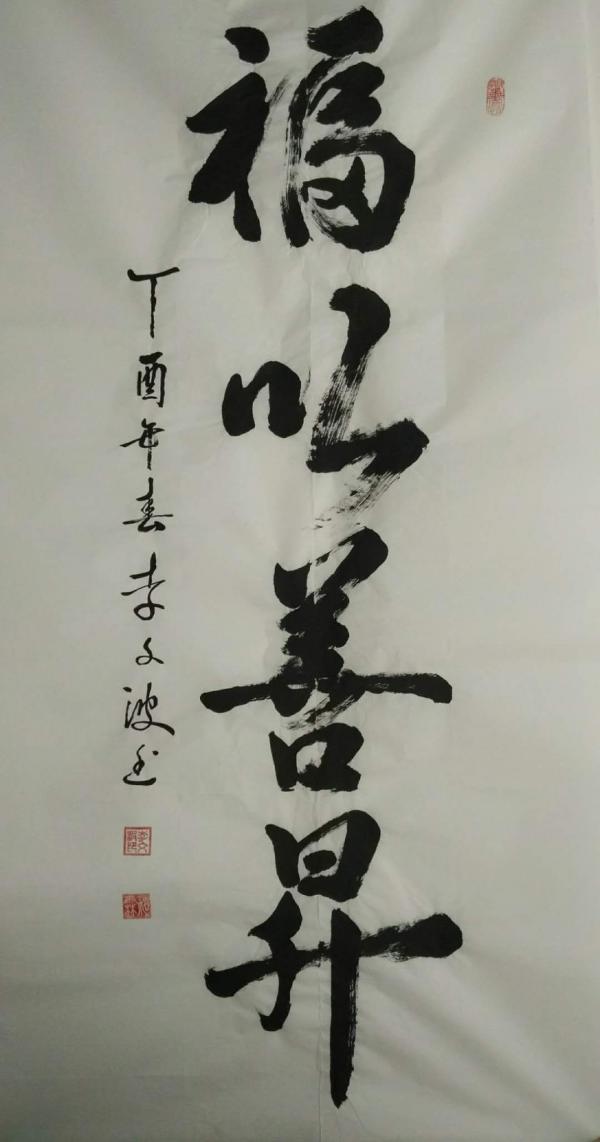 福以善昇
丁酉年春李文波书